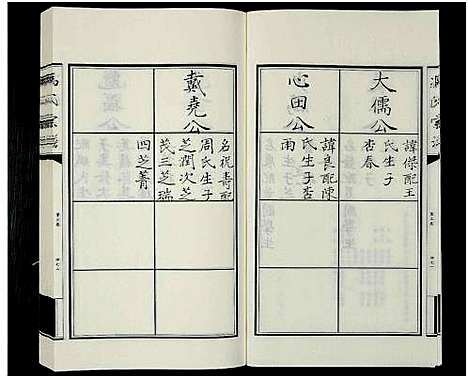 大儒公
諱傑配王
氏生子
杏春
心田公
諱良配陳
氏生子杏
雨
戴堯公
名祝壽配
周氏生子
芝潤次芝
茂三芝瑞
四芝菁